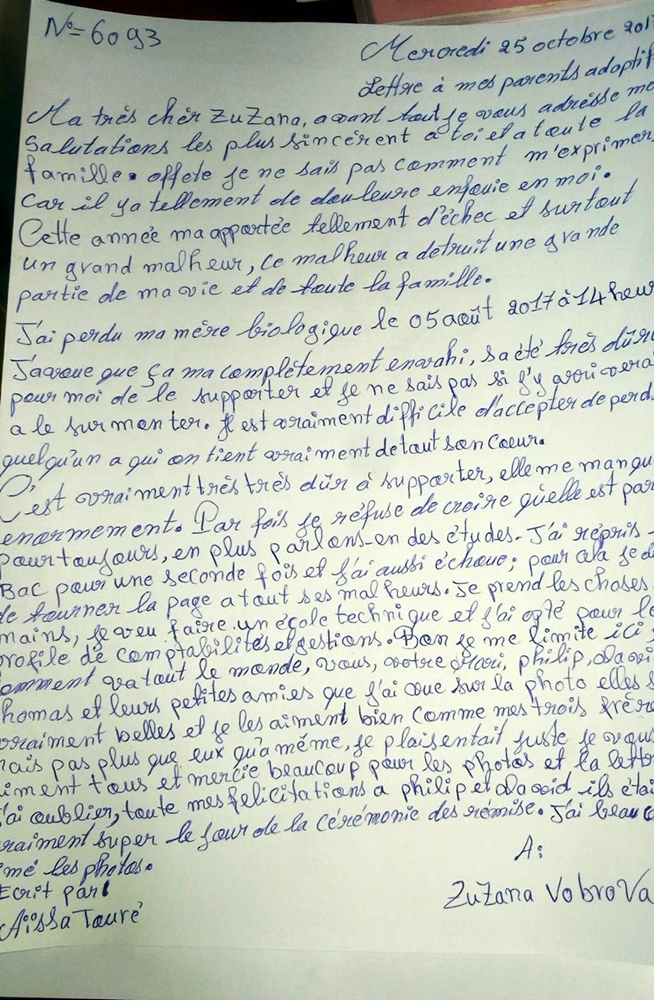 N°=6093
Mercredi 25 octobre 201
Lettre à mes parents adoptif
Ma très chér ZuZana, avant tout je vous adresse me
Salutations les plus sincérent à toi et a toute la
famille. offete je ne sais pas comment m'exprimer,
Car il ya tellement de douleure enfouie en moi.
Cette année ma apportée tellement d'échec et surtout
un grand malheur, ce malheur a detruit une grande
partie de ma vie et de toute la famille.
J'ai perdu ma mère biologique le 05 août 2017 à 14 heur
J'avoue que ça ma complètement envahi, sa été très dûre
pour moi de le supporter et je ne sais pas si j'y arriverai
a le surmonter. Il est vraiment difficile d'accepter de perd
quelqu'un a qui on tient vraiment de tout son coeur.
C'est vraiment très très dûr à supporter, elle me manqu
enormement. Par fois je réfuse de croire qu'elle est par
pour toujours, en plus parlons-en des études. J'ai répris
Bac pour une seconde fois et j'ai aussi échoue; pour cela je d
de tourner la page a tout ses malheurs. Je prend les choses
mains, je veu faire un école technique et j'ai opté pour le
profile de comptabilités et gestions. Bon je me limite ici,
omment va tout le monde, vous, votre mari, philip, david
homas et leurs petites amies que j'ai vue sur la photo elles s
vraiment belles et je les aiment bien comme mes trois frère
mais pas plus que eux qu'a même, je plaisentait juste je vous
aiment tous et mercie beaucoup pour les photos et la lettr
'ai oublier, toute mes felicitations a philip et david ils étai
vraiment super le jour de la cérémonie des remise. J'ai beauc
imé les photos.
Ecrit par:
Aïssa Touré
A:
ZuZana VobroVa